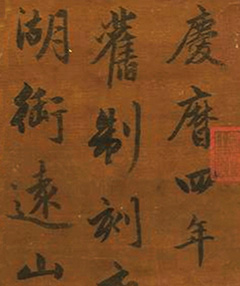 慶曆四年
舊制刻
湖銜遠山